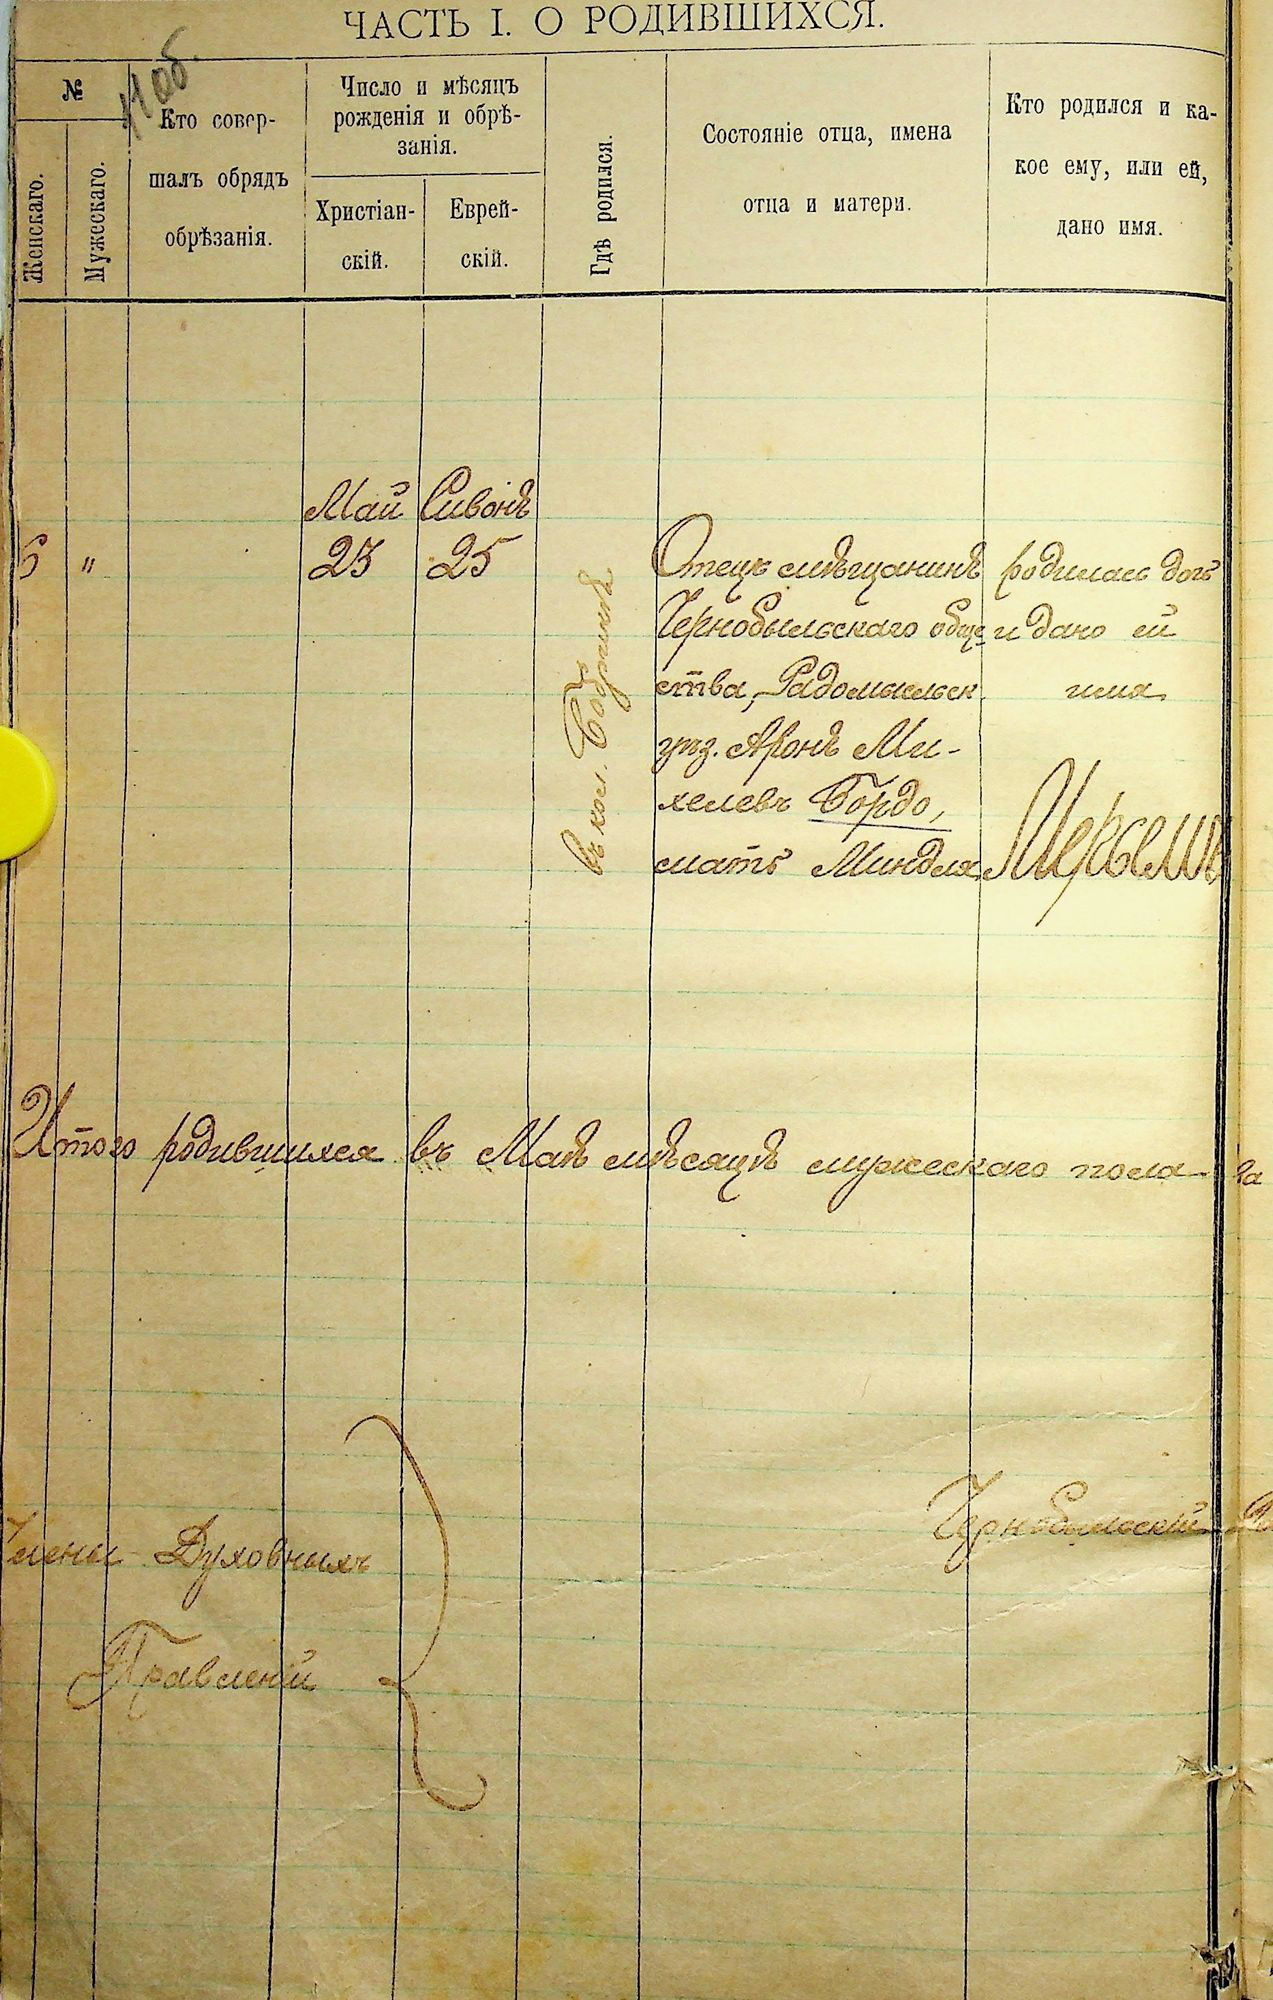 ЧАСТЬ I. О РОДИВШИХСЯ.
11об.
№
Женскаго.
Мужескаго.
Кто совер-
шалъ обрядъ
обрѣзанія.
Число и мѣсяцъ
рожденія и обрѣ-
занія.
Христіан-
скій.
Еврей-
скій.
Гдѣ родился.
Состояніе отца, имена
отца и матери.
Кто родился и ка-
кое ему, или ей,
дано имя.
Май Сивонъ
6 " 23 25
въ кол.
Отецъ мѣщанинъ
Чернобыльскаго обще-
ства, Радомысльск.
уѣз. Аронъ Ми-
хелевъ Бордо,
мать Миндля
родилась дочь
и дано ей
имя
Итого родившихся въ Маѣ мѣсяцѣ мужескаго пола
Члены Духовныхъ
Правленій
Чернобыльскій